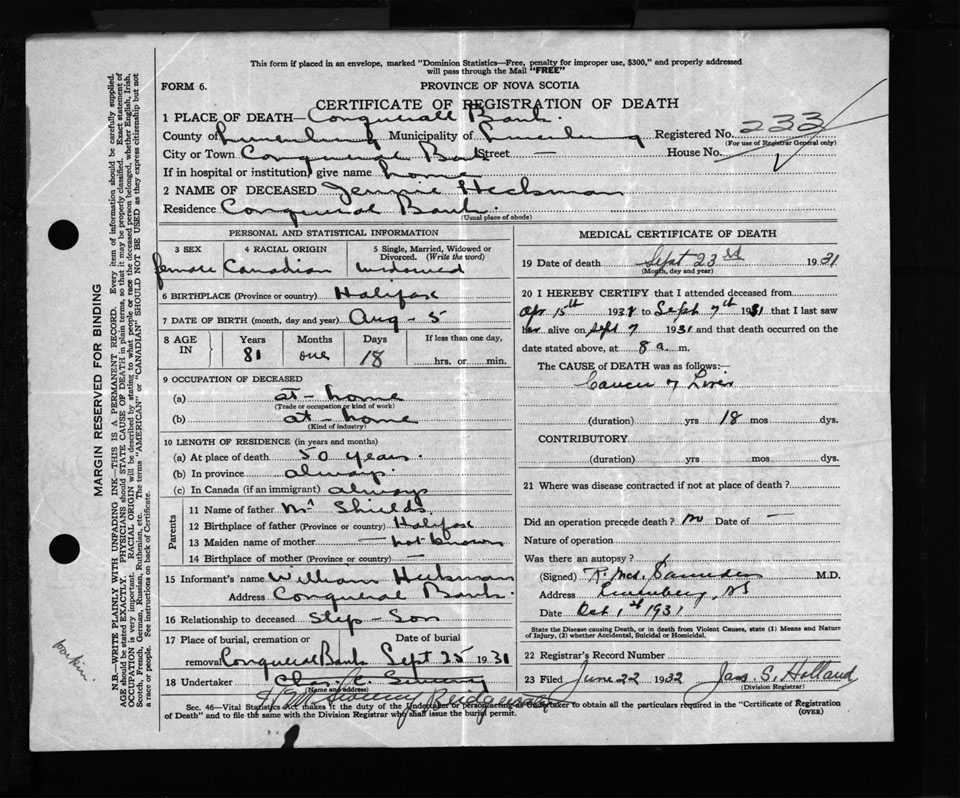 This form if placed in an envelope, marked "Dominion Statistics—Free, penalty for improper use, $300," and properly addressed
will pass through the Mail "FREE"
FORM 6.
PROVINCE OF NOVA SCOTIA
CERTIFICATE OF REGISTRATION OF DEATH
1 PLACE OF DEATH— Conquerall Bank.
County of Lunenburg Municipality of Lunenburg Registered No. 233
(For use of Registrar General only)
City or Town Conqueral Bank Street House No.
If in hospital or institution, give name home
2 NAME OF DECEASED Jennie Heckman
Residence Conqueral Bank.
(Usual place of abode)
PERSONAL AND STATISTICAL INFORMATION
3 SEX 4 RACIAL ORIGIN 5 Single, Married, Widowed or Divorced. (Write the word)
female Canadian widowed
6 BIRTHPLACE (Province or country) Halifax
7 DATE OF BIRTH (month, day and year) Aug - 5
8 AGE IN Years Months Days If less than one day,
81 one 18 hrs. or min.
9 OCCUPATION OF DECEASED
(a) at - home
(Trade or occupation or kind of work)
(b) at - home
(Kind of industry)
10 LENGTH OF RESIDENCE (in years and months)
(a) At place of death 50 years.
(b) In province always.
(c) In Canada (if an immigrant) always
Parents
11 Name of father Mr Shields
12 Birthplace of father (Province or country) Halifax
13 Maiden name of mother — not known
14 Birthplace of mother (Province or country) —
15 Informant's name William Heckman
Address Conqueral Bank.
16 Relationship to deceased Step - Son
17 Place of burial, cremation or removal Date of burial
Conqueral Bank Sept 25 1931
18 Undertaker Chas.
(Name and address)
MEDICAL CERTIFICATE OF DEATH
19 Date of death Sept 23rd 1931
(Month, day and year)
20 I HEREBY CERTIFY that I attended deceased from
Apr 15th 1931 to Sept 7th 1931 that I last saw
her alive on Sept 7 1931 and that death occurred on the
date stated above, at 8 a. m.
The CAUSE OF DEATH was as follows:—
Cancer of Liver
(duration) yrs 18 mos dys.
CONTRIBUTORY
(duration) yrs mos dys.
21 Where was disease contracted if not at place of death?
Did an operation precede death? no Date of —
Nature of operation
Was there an autopsy?
(Signed) R. McD. Saunders M.D.
Address Lunenburg, NS
Date Oct 1st 1931
State the Disease causing Death, or in death from Violent Causes, state (1) Means and Nature of Injury, (2) whether Accidental, Suicidal or Homicidal.
22 Registrar's Record Number
23 Filed June 22 1932 Jas. S. Holland
(Division Registrar)
Sec. 46—Vital Statistics Act makes it the duty of the Undertaker or person acting as Undertaker to obtain all the particulars required in the "Certificate of Registration
of Death" and to file the same with the Division Registrar who shall issue the burial permit.
(OVER)
MARGIN RESERVED FOR BINDING
N.B.—WRITE PLAINLY WITH UNFADING INK—THIS IS A PERMANENT RECORD. Every item of information should be carefully supplied.
AGE should be stated EXACTLY. PHYSICIANS should STATE CAUSE OF DEATH in plain terms, so that it may be properly classified. Exact statement of
OCCUPATION is very important. RACIAL ORIGIN will be described by stating to what people or race the deceased person belonged, whether English, Irish,
Scotch, French, German, Russian, Ruthenian, etc. The terms "AMERICAN" or "CANADIAN" SHOULD NOT BE USED as they express citizenship but not
a race or people. See instructions on back of Certificate.